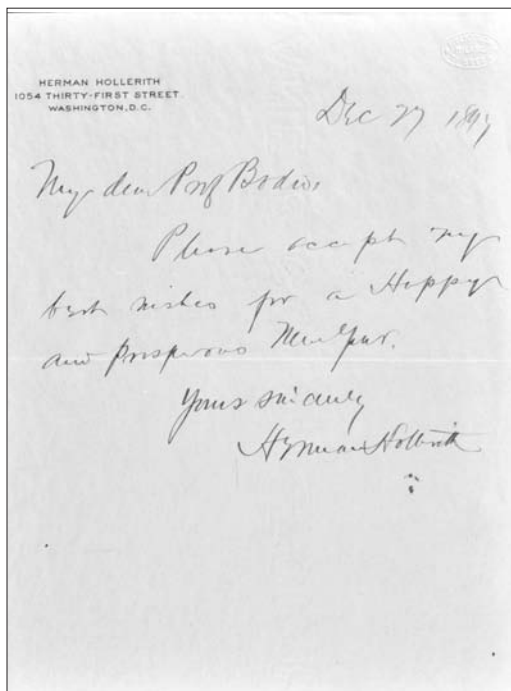 HERMAN HOLLERITH
1054 THIRTY-FIRST STREET
WASHINGTON, D.C.
Dec 27 1897
My dear Prof Bodio,
Please accept my
best wishes for a Happy
and Prosperous New Year.
Yours sincerely
Herman Hollerith